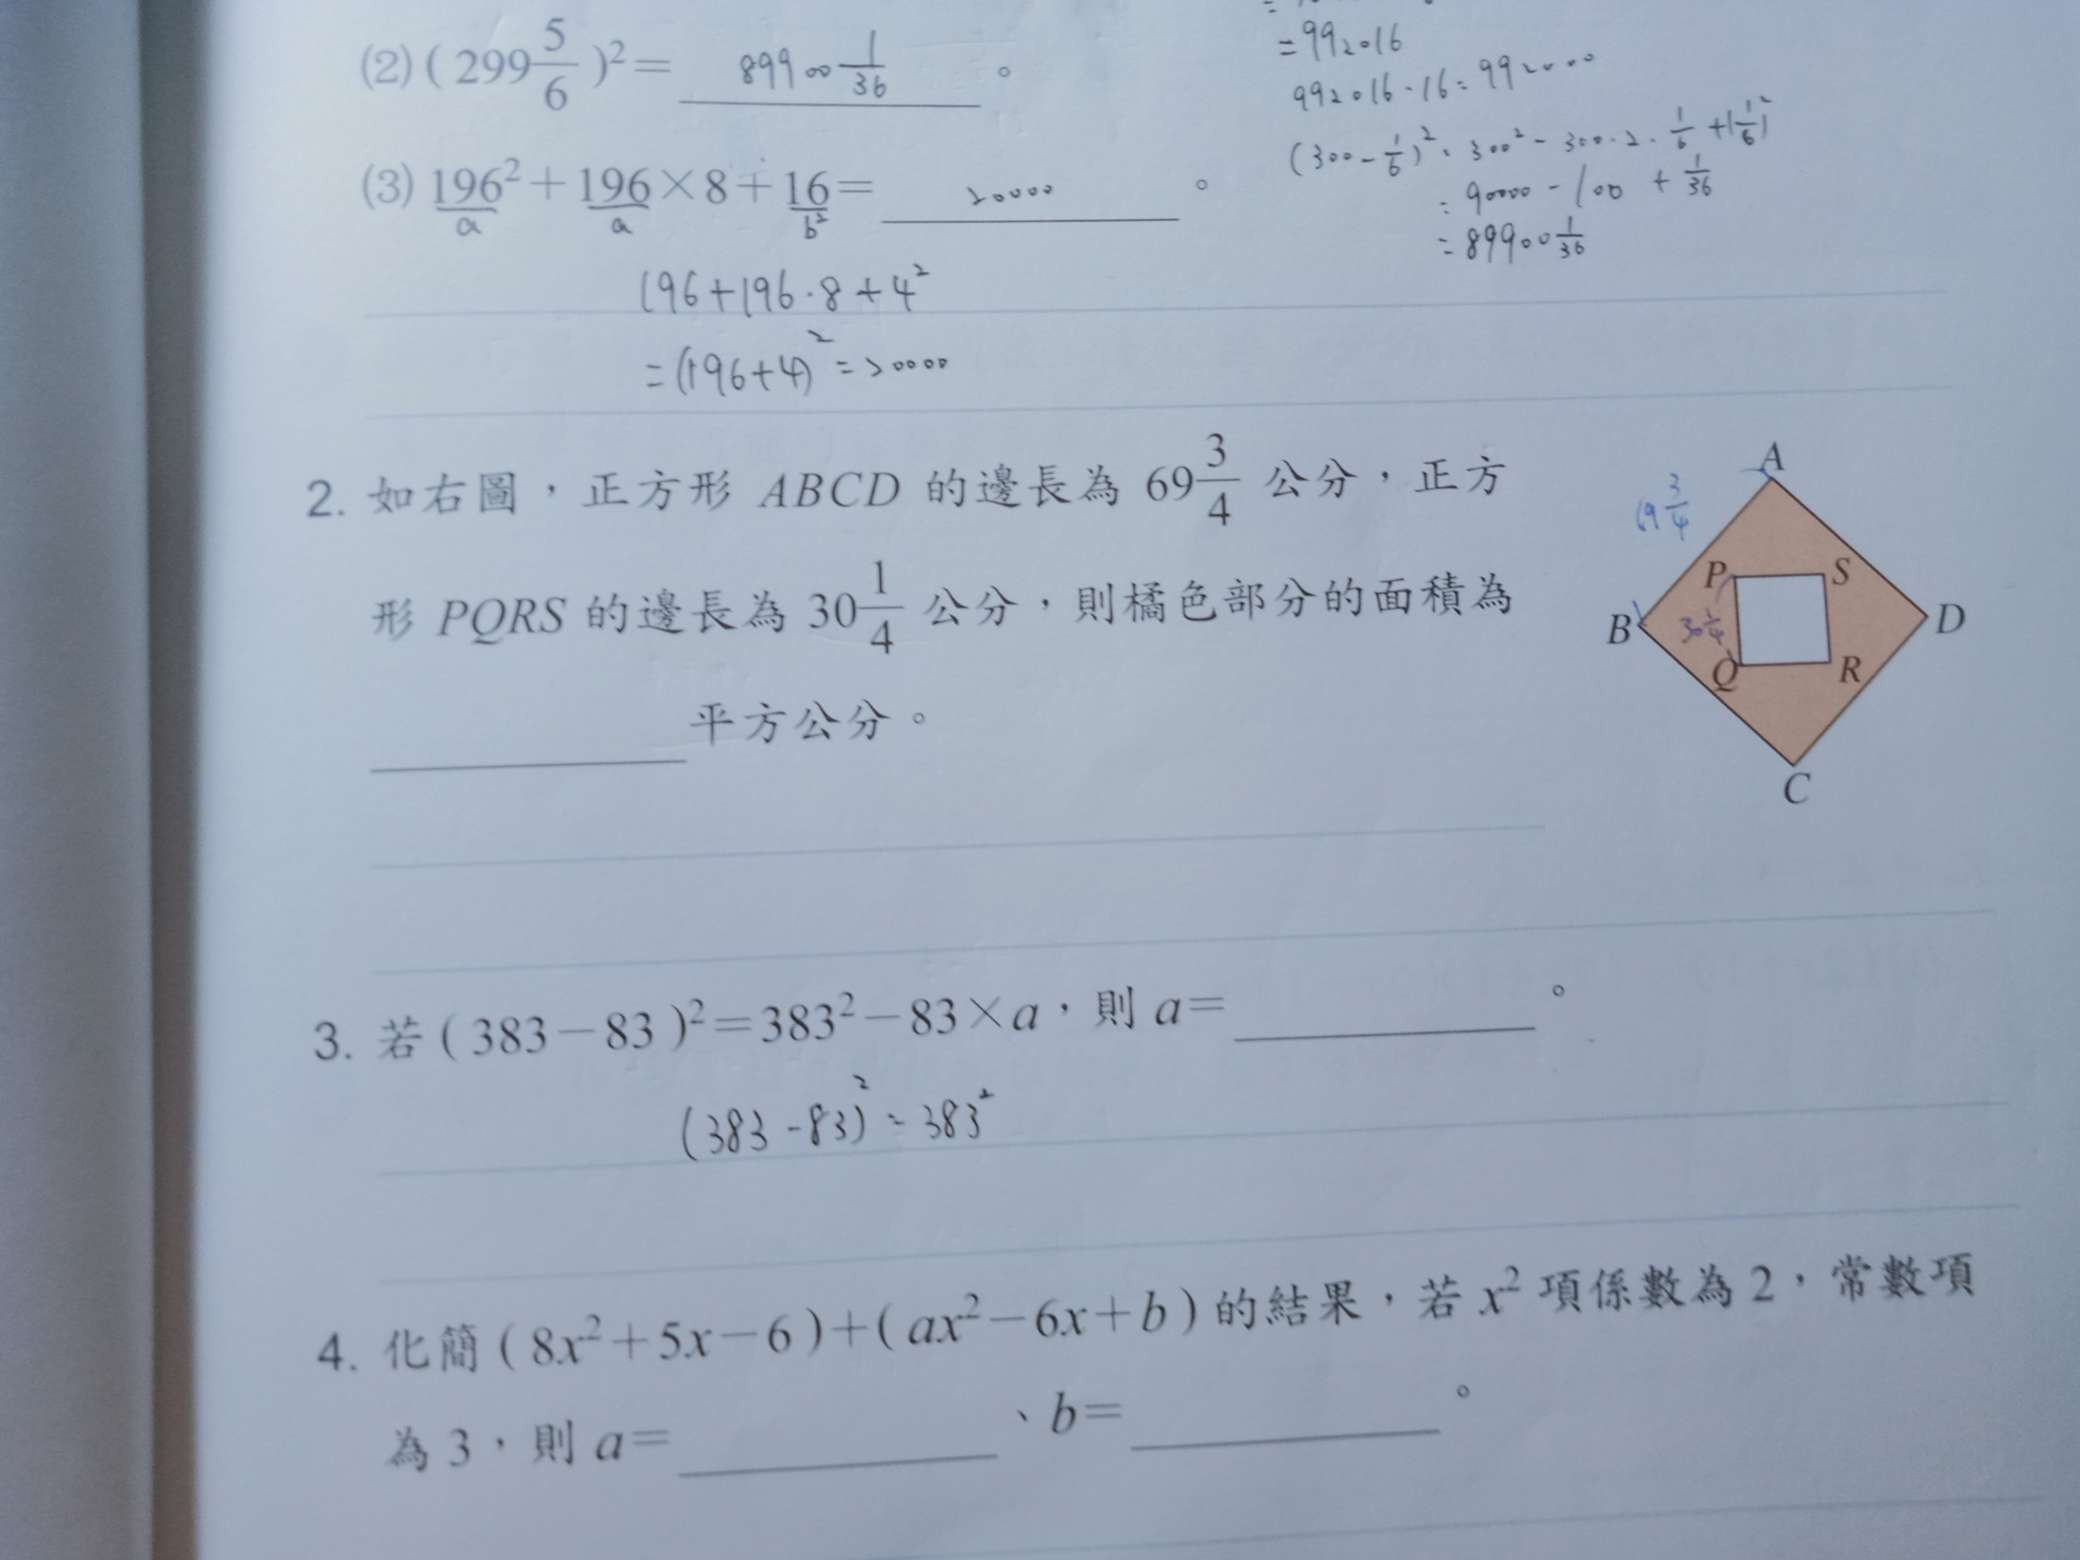 (2) ( 299 5/6 )² = 89900 1/36 。
= 992016
992016 - 16 = 992000
(300 - 1/6)² = 300² - 300·2·1/6 + (1/6)²
= 90000 - 100 + 1/36
= 89900 1/36
(3) 196² + 196 × 8 + 16 = 20000 。
a a b²
196 + 196·8 + 4²
= (196+4)² = 20000
2. 如右圖，正方形 ABCD 的邊長為 69 3/4 公分，正方
形 PQRS 的邊長為 30 1/4 公分，則橘色部分的面積為
平方公分。
A
69 3/4
P S
B 30 1/4 D
Q R
C
3. 若 ( 383 － 83 )² = 383² － 83 × a，則 a = 。
(383 - 83)² = 383²
4. 化簡 ( 8x² + 5x － 6 ) + ( ax² － 6x + b ) 的結果，若 x² 項係數為 2，常數項
為 3，則 a = 、b = 。